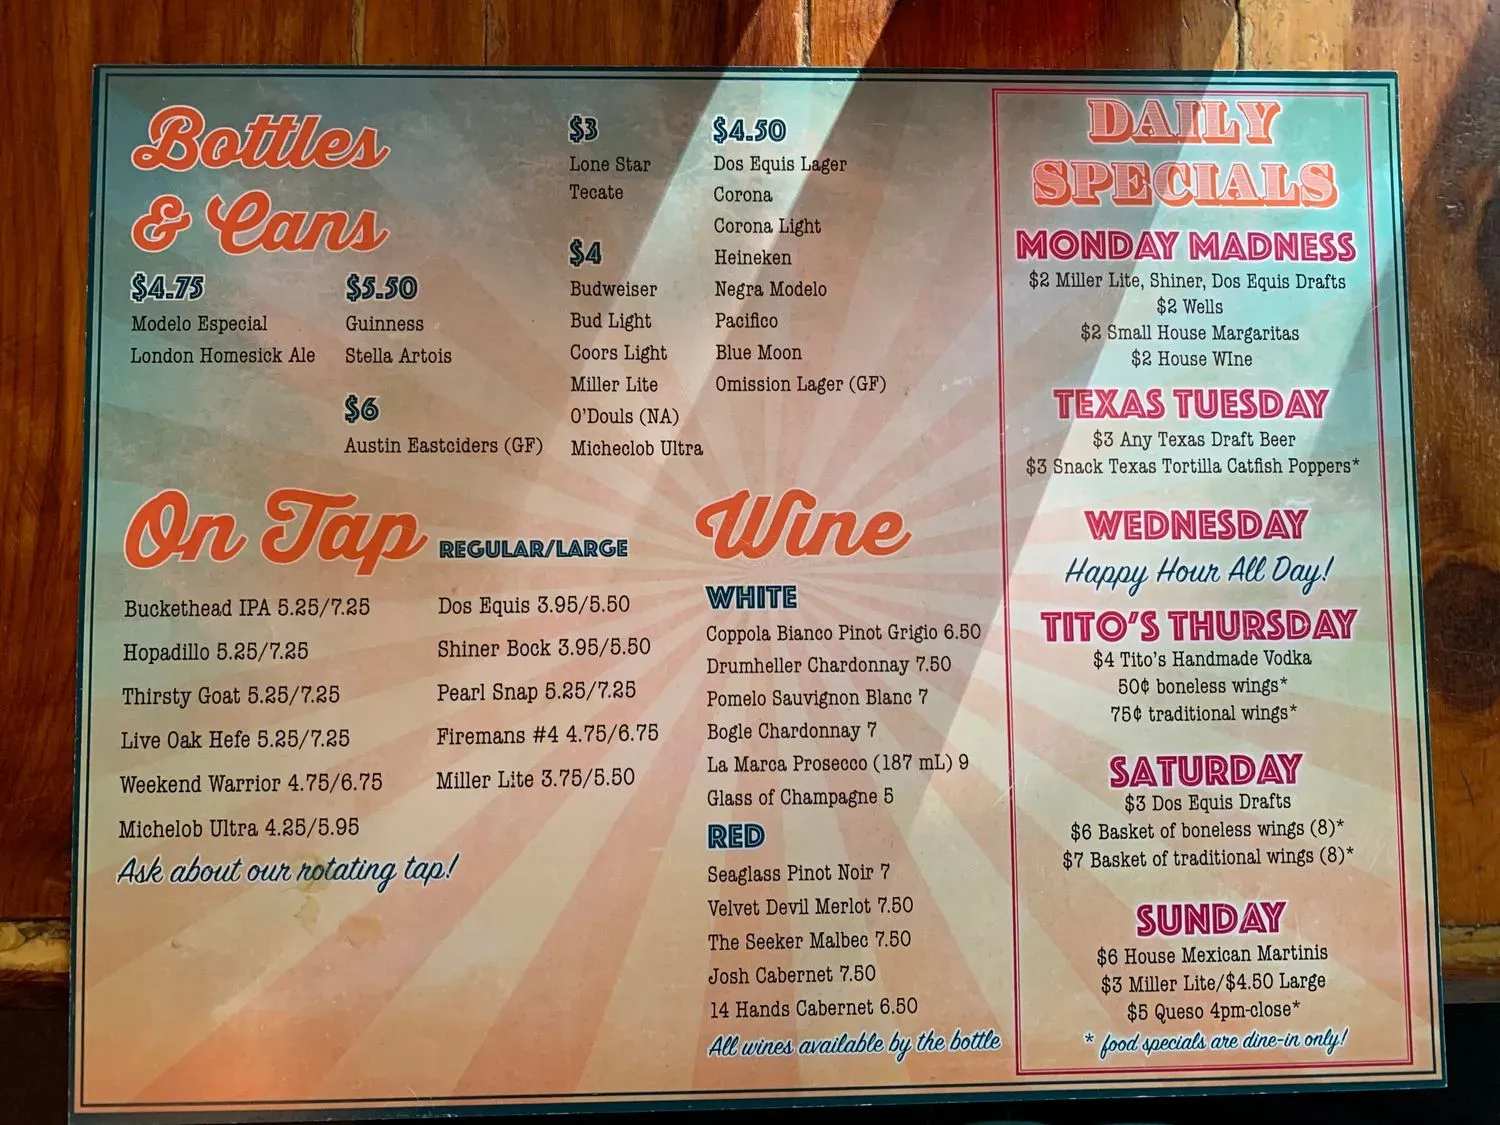 Bottles
& Cans
$4.75
Modelo Especial
London Homesick Ale
$5.50
Guinness
Stella Artois
$6
Austin Eastciders (GF)
$3
Lone Star
Tecate
$4
Budweiser
Bud Light
Coors Light
Miller Lite
O'Douls (NA)
Micheclob Ultra
$4.50
Dos Equis Lager
Corona
Corona Light
Heineken
Negra Modelo
Pacifico
Blue Moon
Omission Lager (GF)
On Tap REGULAR/LARGE
Buckethead IPA 5.25/7.25
Hopadillo 5.25/7.25
Thirsty Goat 5.25/7.25
Live Oak Hefe 5.25/7.25
Weekend Warrior 4.75/6.75
Michelob Ultra 4.25/5.95
Dos Equis 3.95/5.50
Shiner Bock 3.95/5.50
Pearl Snap 5.25/7.25
Firemans #4 4.75/6.75
Miller Lite 3.75/5.50
Ask about our rotating tap!
Wine
WHITE
Coppola Bianco Pinot Grigio 6.50
Drumheller Chardonnay 7.50
Pomelo Sauvignon Blanc 7
Bogle Chardonnay 7
La Marca Prosecco (187 mL) 9
Glass of Champagne 5
RED
Seaglass Pinot Noir 7
Velvet Devil Merlot 7.50
The Seeker Malbec 7.50
Josh Cabernet 7.50
14 Hands Cabernet 6.50
All wines available by the bottle
DAILY
SPECIALS
MONDAY MADNESS
$2 Miller Lite, Shiner, Dos Equis Drafts
$2 Wells
$2 Small House Margaritas
$2 House WIne
TEXAS TUESDAY
$3 Any Texas Draft Beer
$3 Snack Texas Tortilla Catfish Poppers*
WEDNESDAY
Happy Hour All Day!
TITO'S THURSDAY
$4 Tito's Handmade Vodka
50¢ boneless wings*
75¢ traditional wings*
SATURDAY
$3 Dos Equis Drafts
$6 Basket of boneless wings (8)*
$7 Basket of traditional wings (8)*
SUNDAY
$6 House Mexican Martinis
$3 Miller Lite/$4.50 Large
$5 Queso 4pm-close*
* food specials are dine-in only!